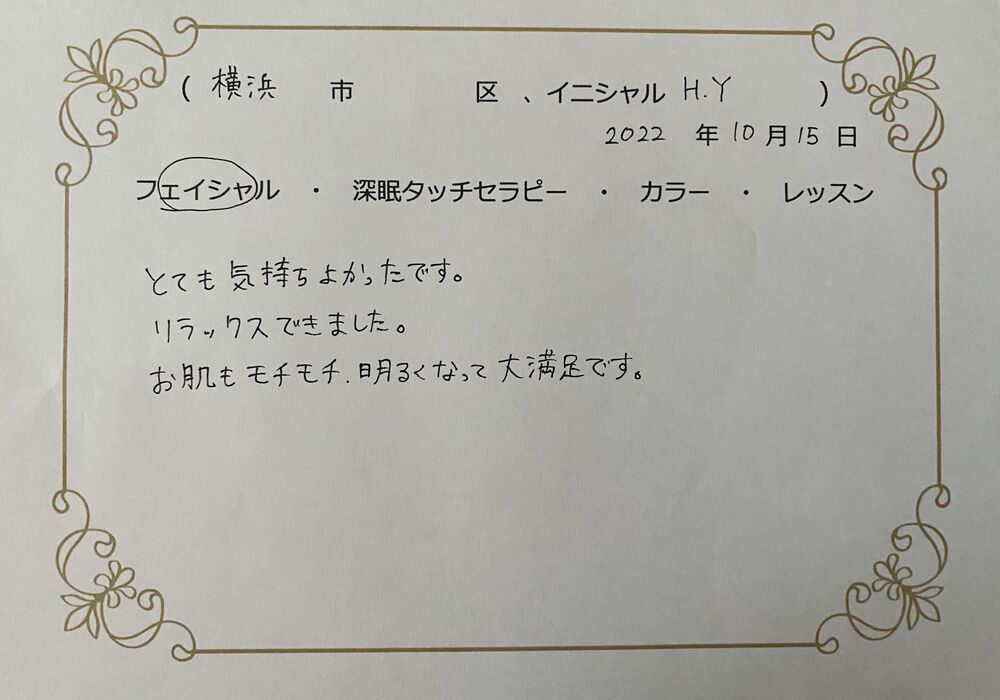 ( 横浜 市 区 、イニシャル H.Y )
2022 年 10 月 15 日
フェイシャル ・ 深眠タッチセラピー ・ カラー ・ レッスン
とても気持ちよかったです。
リラックスできました。
お肌もモチモチ、明るくなって大満足です。